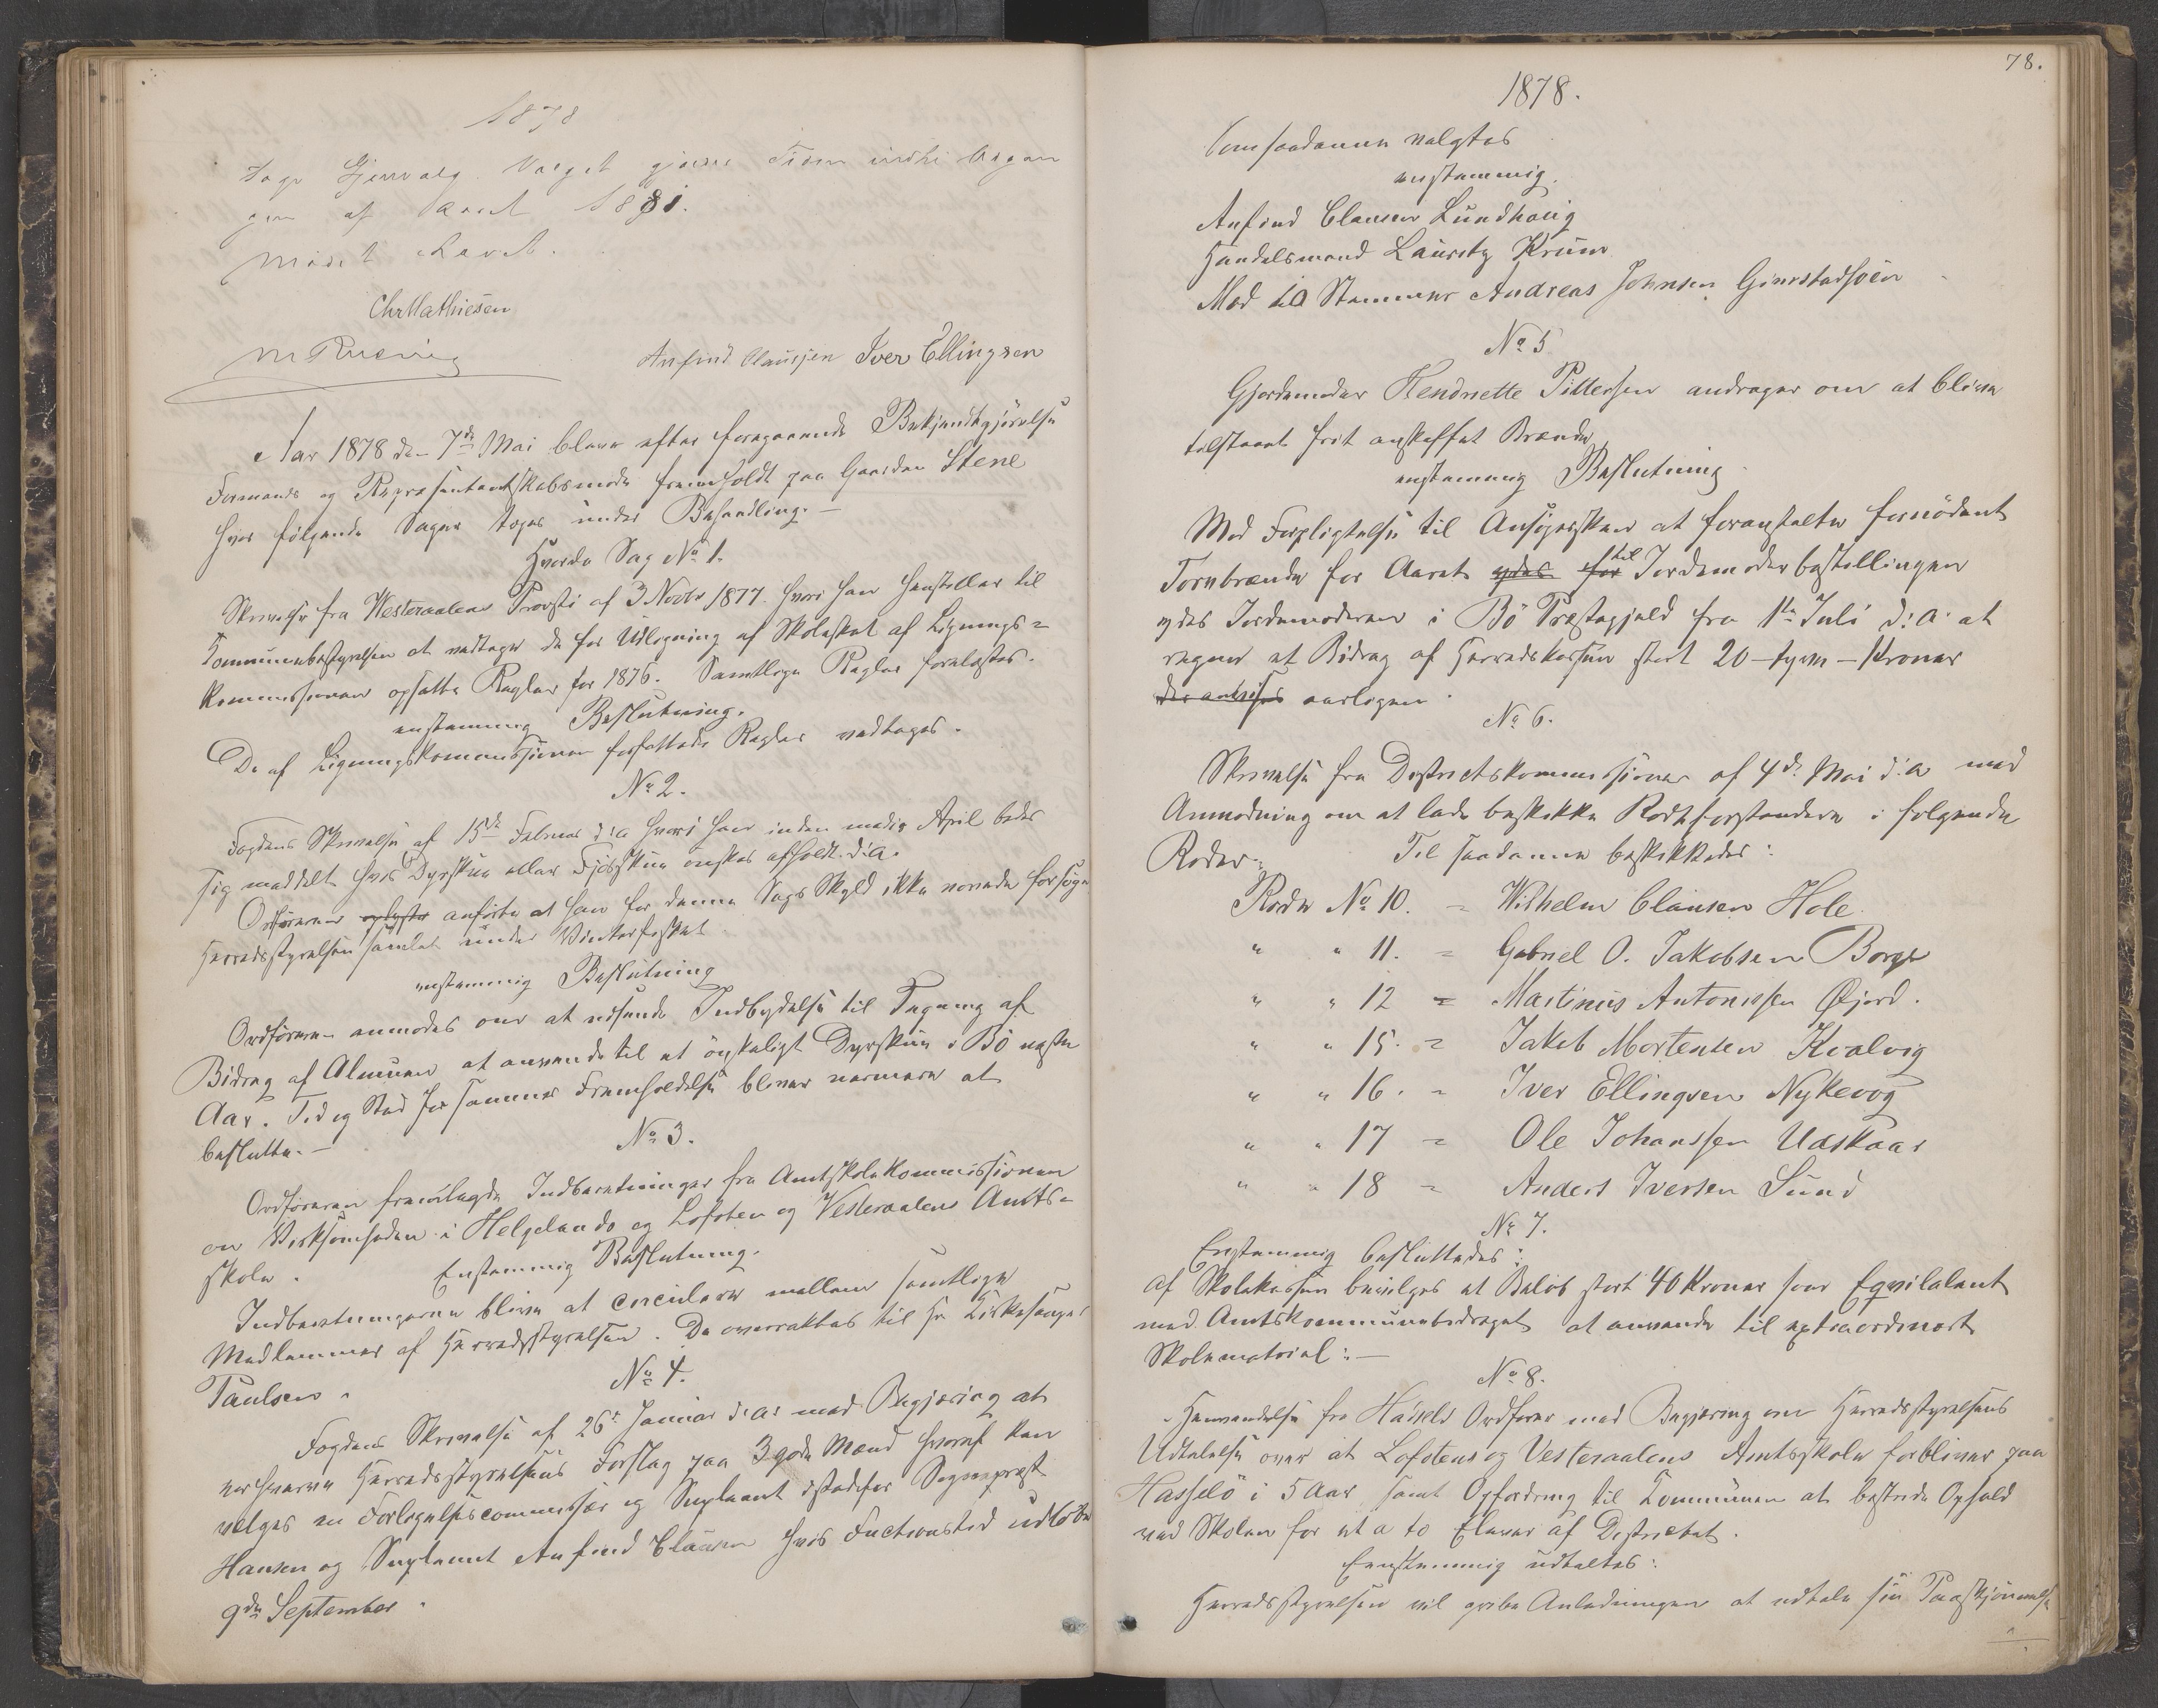 1878
toge Gjenvalg. Valget gjælder Tiden indtil Udgan
gen af Aaret 1881.
Mødet hævet.
Chr Mathiesen
M Rusning
Anfind Claussen Iver Ellingsen
Aar 1878 den 7de Mai blev efter foregaaende Bekjendtgjørelse
Formands og Repræsentantskabsmøde fremholdt paa Gaarden Steine
hvor følgende Sager toges under Behandling. —
Herreds Sag No 1.
Skrivelse fra Westeraalens Provsti af 3 Novbr 1877. hvori han henstiller til
Kommunebestyrelsen at vedtage de for Udligning af Skoleskat af Lignings=
kommissionen opsatte Regler for 1876. Samtlige Regler forelæstes.
enstemmig Beslutning.
De af Ligningskommissionen forfattede Regler vedtages.
No 2.
Fogdens Skrivelse af 15de Februar d:a hvori han inden medio April beder
sig meddelt hvis Dyrskue eller Fjøsskue ønskes afholdt d:a.
Ordføreren oplyste anførte at han for denne Sags Skyld ikke vovede forsøge
Herredsstyrelsen samlet under Vinterfisket
enstemmig Beslutning
Ordføreren anmodes om at udsende Indbydelse til Tegning af
Bidrag af Almuen at anvende til et ønskeligt Dyrskue i Bö næste
Aar. Tid og Sted for sammes Fremholdelse bliver nærmere at
beslutte. —
No 3.
Ordføreren fremlagde Indberetninger fra Amtsskolekommissionen
om Virksomheden i Helgelands og Lofoten og Vesteraalens Amts=
skoler.
Enstemmig Beslutning.
Indberetningerne bliver at circulere mellem samtlige
Medlemmer af Herredsstyrelsen. De overraktes til Hr Kirkesanger
Paulsen.
No 4.
Fogdens Skrivelse af 26de Januar d:a: med Begjæring at
erhverve Herredsstyrelsens Forslag paa 3 gode Mænd hvoraf kan
vælges en Forligelsescommissær og Supleant istedetfor Sogneprest
Hansen og Supleant Anfind Clausen hvis Functionstid udløber
9de September.
78.
1878.
Som saadanne valgtes
enstemmig.
Anfind Clausen Lundhaug
Handelsmand Lauritz Krum
Med 10 Stemmer Andreas Johnsen Gimstadsøen
No 5
Gjordemoder Hendriette Pittersen andrager om at blive
tilstaaet frit anskaffet Brænde
enstemmig Beslutning
Med Forpligtelse til Ansøgersken at foranstalte fornødent
Tornbrænde for Aaret ydes for til Jordemoderbestillingen
ydes Jordemoderen i Bö Præstegjeld fra 1te Juli d:a: at
regne et Bidrag af Herredskassen stort 20 — tyve — Kroner
aarligen.
No 6.
Skrivelse fra Districtskommissionen af 4de Mai d:a med
Anmodning om at lade beskikke Rodeforstandere i følgende
Roder.
Til saadanne beskikkedes:
Rode No 10. = Wilhelm Clausen Hole
" " 11. = Gabriel O. Jakobsen Borge
" " 12 = Martinus Antonissen Øjord.
" " 15. = Jakob Mortensen Kvalvig
" " 16. = Iver Ellingsen Nykevog
" " 17 = Ole Johanssen Udskaar
" " 18 = Anders Iversen Sund
No 7.
Enstemmig besluttedes:
Af Skolekassen bevilges et Beløb stort 40 Kroner som Eqvilalent
med Amtskommunebidraget at anvende til extraordinært
Skolematerial: —
No 8.
Henvendelse fra Hassels Ordfører med Begjæring om Herredsstyrelsens
Udtalelse over at Lofotens og Vesteraalens Amtsskole forbliver paa
Hasselö i 5 Aar samt Opfordring til Kommunen at bestride Ophold
ved Skolen for et a to Elever af Districtet.
Eenstemmig udtaltes:
Herredsstyrelsen vil gribe Anledningen at udtale sin Paaskjønnelse